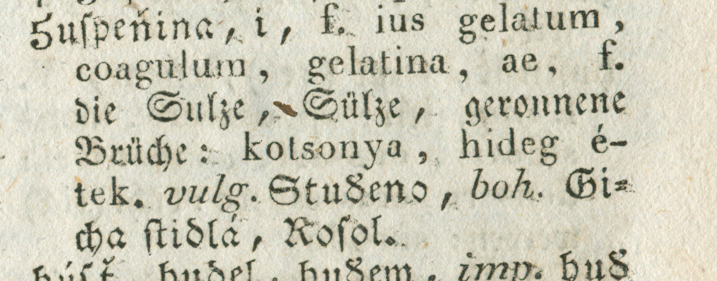 Huſpeňina, i, f. ius gelatum,
coagulum, gelatina, ae, f.
die Sulze, Sülze, geronnene
Brüche: kotsonya, hideg é-
tek. vulg. Studeno, boh. Gi=
cha ſtidlá, Roſol.
húſť, hudel, hudem, imp. hud